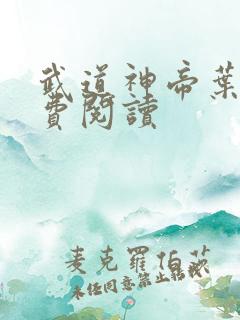 武道神帝葉
費閱讀
麦克羅伯茨
未任同意禁止轉載